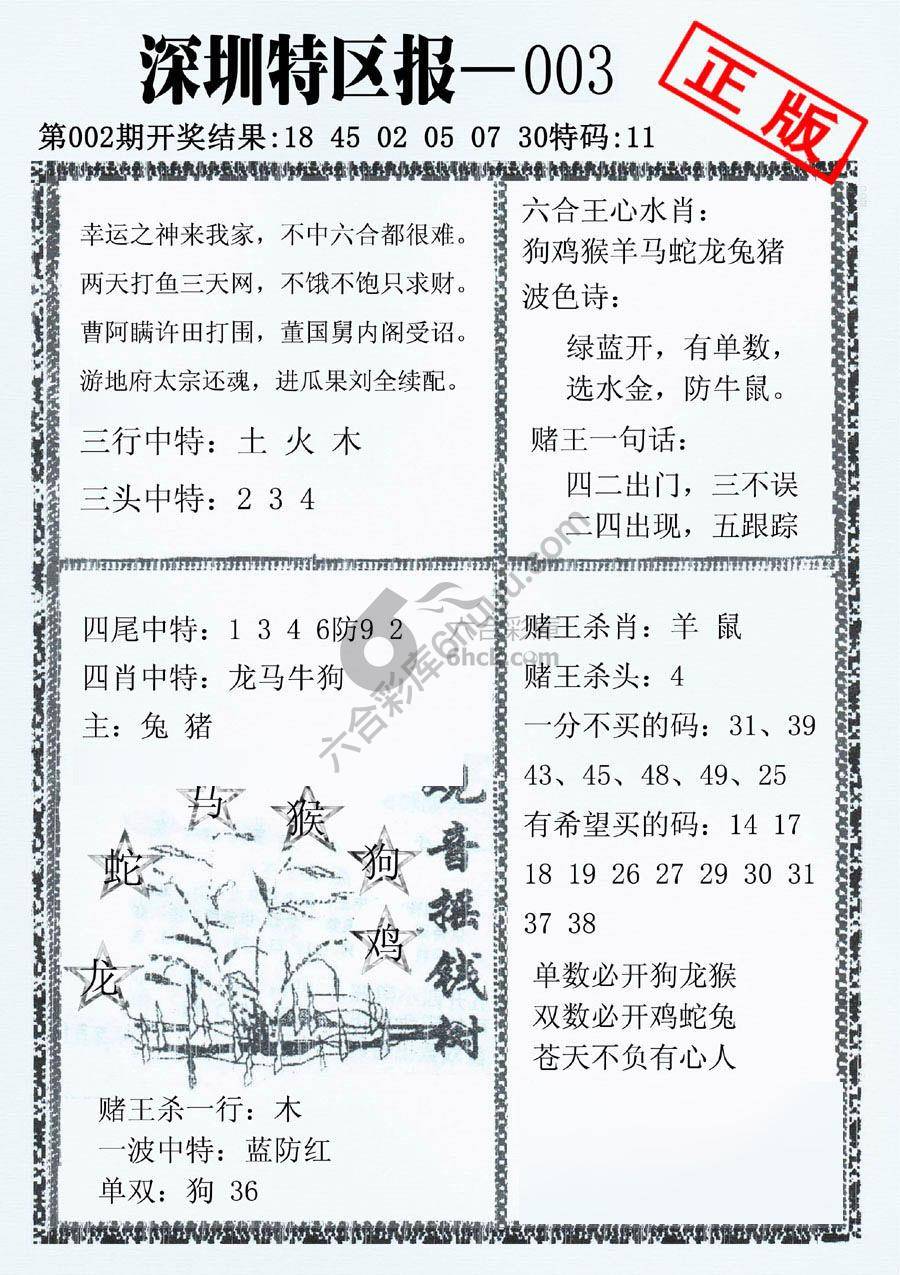 深圳特区报—003
正版
第002期开奖结果:18 45 02 05 07 30特码:11
幸运之神来我家，不中六合都很难。
两天打鱼三天网，不饿不饱只求财。
曹阿瞒许田打围，董国舅内阁受诏。
游地府太宗还魂，进瓜果刘全续配。
三行中特：土 火 木
三头中特：2 3 4
六合王心水肖：
狗鸡猴羊马蛇龙兔猪
波色诗：
绿蓝开，有单数，
选水金，防牛鼠。
赌王一句话：
四二出门，三不误
二四出现，五跟踪
四尾中特：1 3 4 6防9 2
四肖中特：龙马牛狗
主：兔 猪
马
猴
蛇
狗
鸡
龙
观音摇钱树
赌王杀一行：木
一波中特：蓝防红
单双：狗 36
赌王杀肖：羊 鼠
赌王杀头：4
一分不买的码：31、39
43、45、48、49、25
有希望买的码：14 17
18 19 26 27 29 30 31
37 38
单数必开狗龙猴
双数必开鸡蛇兔
苍天不负有心人
六合彩库6htutu.com
六合彩库
6hck.com